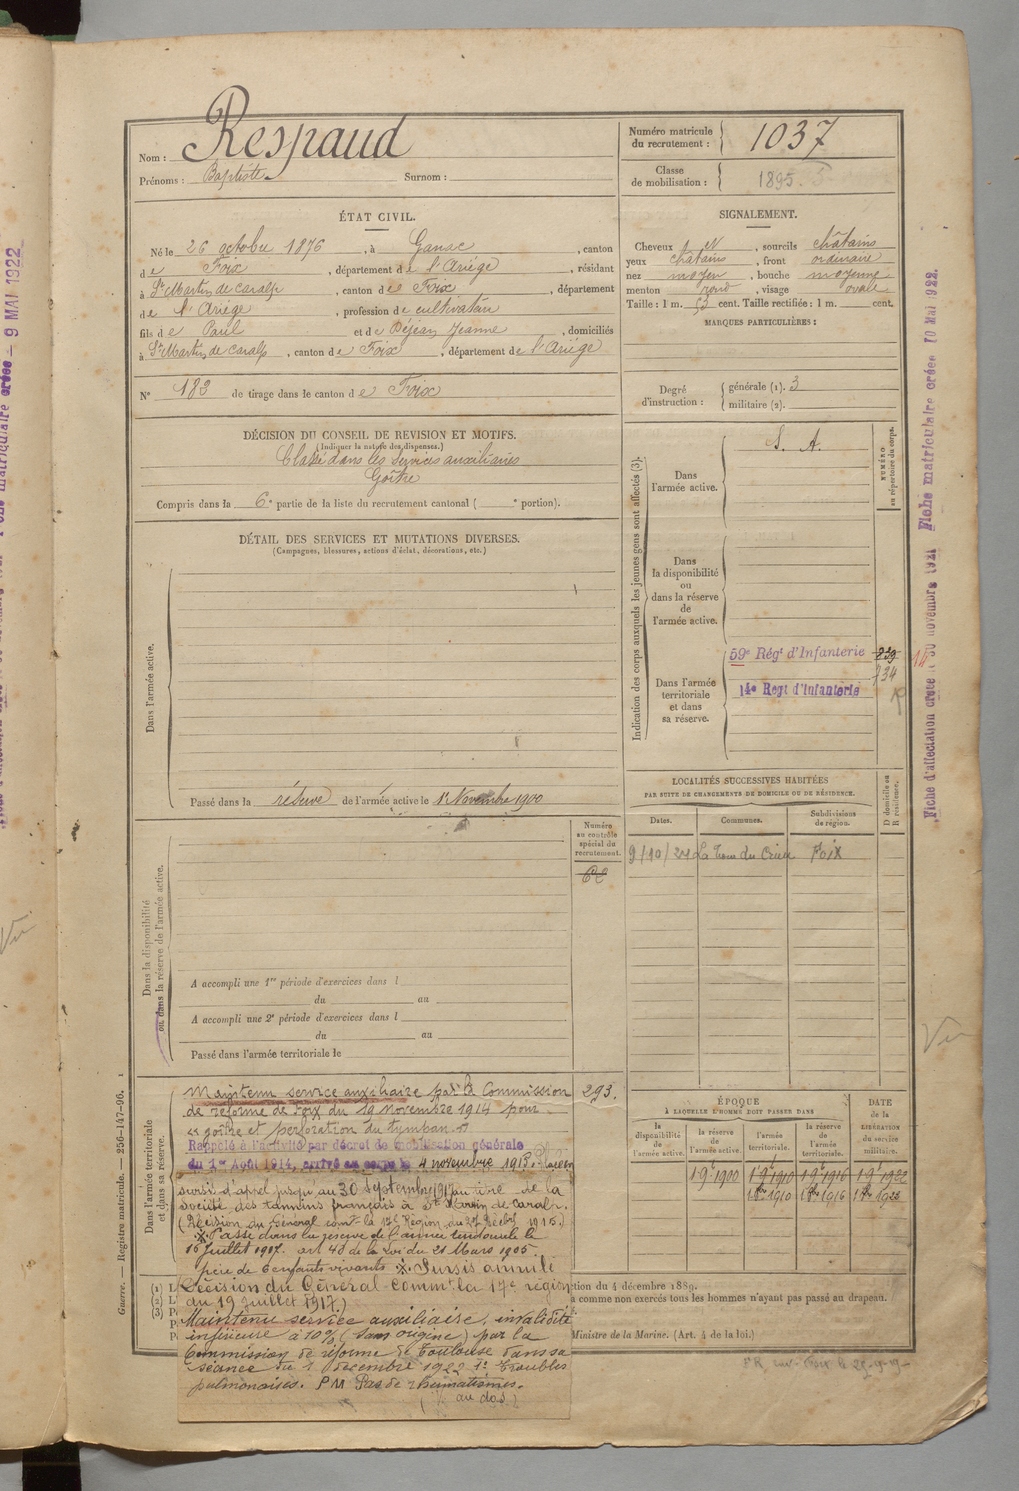 Nom : Respaud
Prénoms : Baptiste Surnom :
Numéro matricule du recrutement : 1037
Classe de mobilisation : 1895
ÉTAT CIVIL.
Né le 26 octobre 1876, à Ganac, canton
de Foix, département de l'Ariège, résidant
à St Martin de Caralp, canton de Foix, département
de l'Ariège, profession de cultivateur
fils de Paul et de Déjean Jeanne, domiciliés
à St Martin de Caralp, canton de Foix, département de l'Ariège
N° 183 de tirage dans le canton de Foix
SIGNALEMENT.
Cheveux, sourcils châtains
yeux châtains, front ordinaire
nez moyen, bouche moyenne
menton rond, visage ovale
Taille : 1 m. 53 cent. Taille rectifiée : 1 m. cent.
MARQUES PARTICULIÈRES :
Degré d'instruction : générale (1). 3
militaire (2).
DÉCISION DU CONSEIL DE REVISION ET MOTIFS.
(Indiquer la nature des dispenses.)
Classé dans les services auxiliaires
Goître
Compris dans la 6e partie de la liste du recrutement cantonal ( e portion).
DÉTAIL DES SERVICES ET MUTATIONS DIVERSES.
(Campagnes, blessures, actions d'éclat, décorations, etc.)
Dans l'armée active.
Passé dans la réserve de l'armée active le 1er Novembre 1900
Indication des corps auxquels les jeunes gens sont affectés (3).
NUMÉRO au répertoire du corps.
Dans l'armée active.
S. A.
Dans la disponibilité ou dans la réserve de l'armée active.
Dans l'armée territoriale et dans sa réserve.
59e Régt d'Infanterie 239
734
14e Regt d'Infanterie
LOCALITÉS SUCCESSIVES HABITÉES
PAR SUITE DE CHANGEMENTS DE DOMICILE OU DE RÉSIDENCE.
Dates. Communes. Subdivisions de région. D domicile ou R résidence.
Foix
Dans la disponibilité ou dans la réserve de l'armée active.
Numéro au contrôle spécial du recrutement.
A accompli une 1re période d'exercices dans l
du au
A accompli une 2e période d'exercices dans l
du au
Passé dans l'armée territoriale le
Dans l'armée territoriale et dans sa réserve.
293.
Maintenu service auxiliaire par la Commission
de réforme de Foix du 19 novembre 1914 pour
"goître et perforation du tympan"
Rappelé à l'activité par décret de mobilisation générale
du 1er Août 1914, arrivé au corps le 4 novembre 1915. Placé en
sursis d'appel jusqu'au 30 septembre 1917 au titre de la
Société des tanins français à St Martin de Caralp.
(Décision du Général comt la 17e Région du 1915.)
Passé dans la réserve de l'armée territoriale le
15 Juillet 1917. art 48 de la Loi du 21 Mars 1905.
père de 6 enfants vivants. Sursis annulé
Décision du Général Commt la 17e région
du 19 Juillet 1917.)
Maintenu service auxiliaire, invalidité
inférieure à 10% (sans origine) par la
Commission de réforme de Toulouse dans sa
séance du 1 décembre 1922 1° troubles
pulmonaires. PM Pas de rhumatismes.
au dos.)
ÉPOQUE
À LAQUELLE L'HOMME DOIT PASSER DANS
DATE de la LIBÉRATION du service militaire.
la disponibilité de l'armée active. la réserve de l'armée active. l'armée territoriale. la réserve de l'armée territoriale.
1.9.1900 1.9.1910 1.9.1916 1.9.1922
tion du 4 décembre 1889.
a comme non exercés tous les hommes n'ayant pas passé au drapeau.
Ministre de la Marine. (Art. 4 de la loi.)
Guerre. — Registre matricule. — 256-147-96.
9 MAI 1922
Fiche d'affectation créée le 30 novembre 1921 Fiche matriculaire créée 10 Mai 1922.
14
Vu
Vu